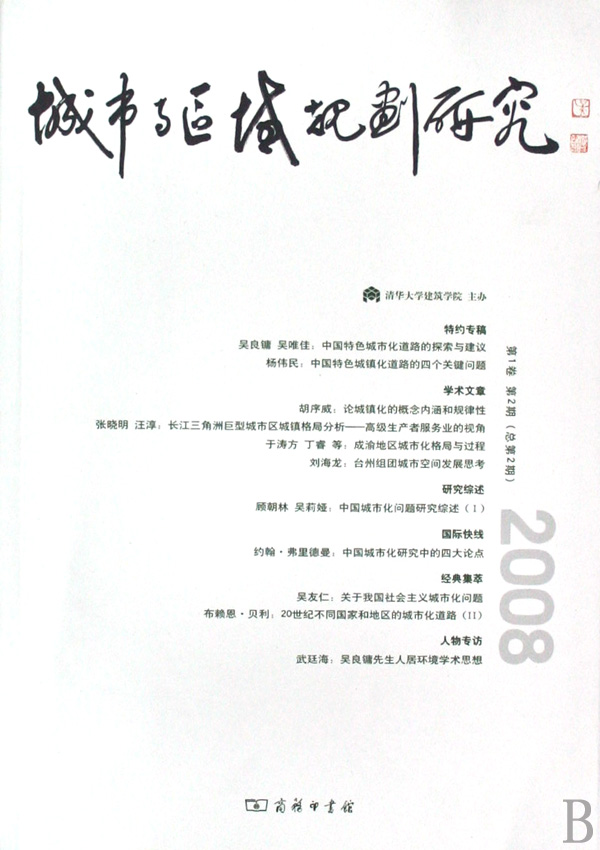 城市与区域规划研究
清华大学建筑学院 主办
特约专稿
吴良镛 吴唯佳：中国特色城市化道路的探索与建议
杨伟民：中国特色城镇化道路的四个关键问题
学术文章
胡序威：论城镇化的概念内涵和规律性
张晓明 汪淳：长江三角洲巨型城市区城镇格局分析——高级生产者服务业的视角
于涛方 丁睿 等：成渝地区城市化格局与过程
刘海龙：台州组团城市空间发展思考
研究综述
顾朝林 吴莉娅：中国城市化问题研究综述（I）
国际快线
约翰·弗里德曼：中国城市化研究中的四大论点
经典集萃
吴友仁：关于我国社会主义城市化问题
布赖恩·贝利：20世纪不同国家和地区的城市化道路（II）
人物专访
武廷海：吴良镛先生人居环境学术思想
第1卷 第2期（总第2期）
2008
商务印书馆
B